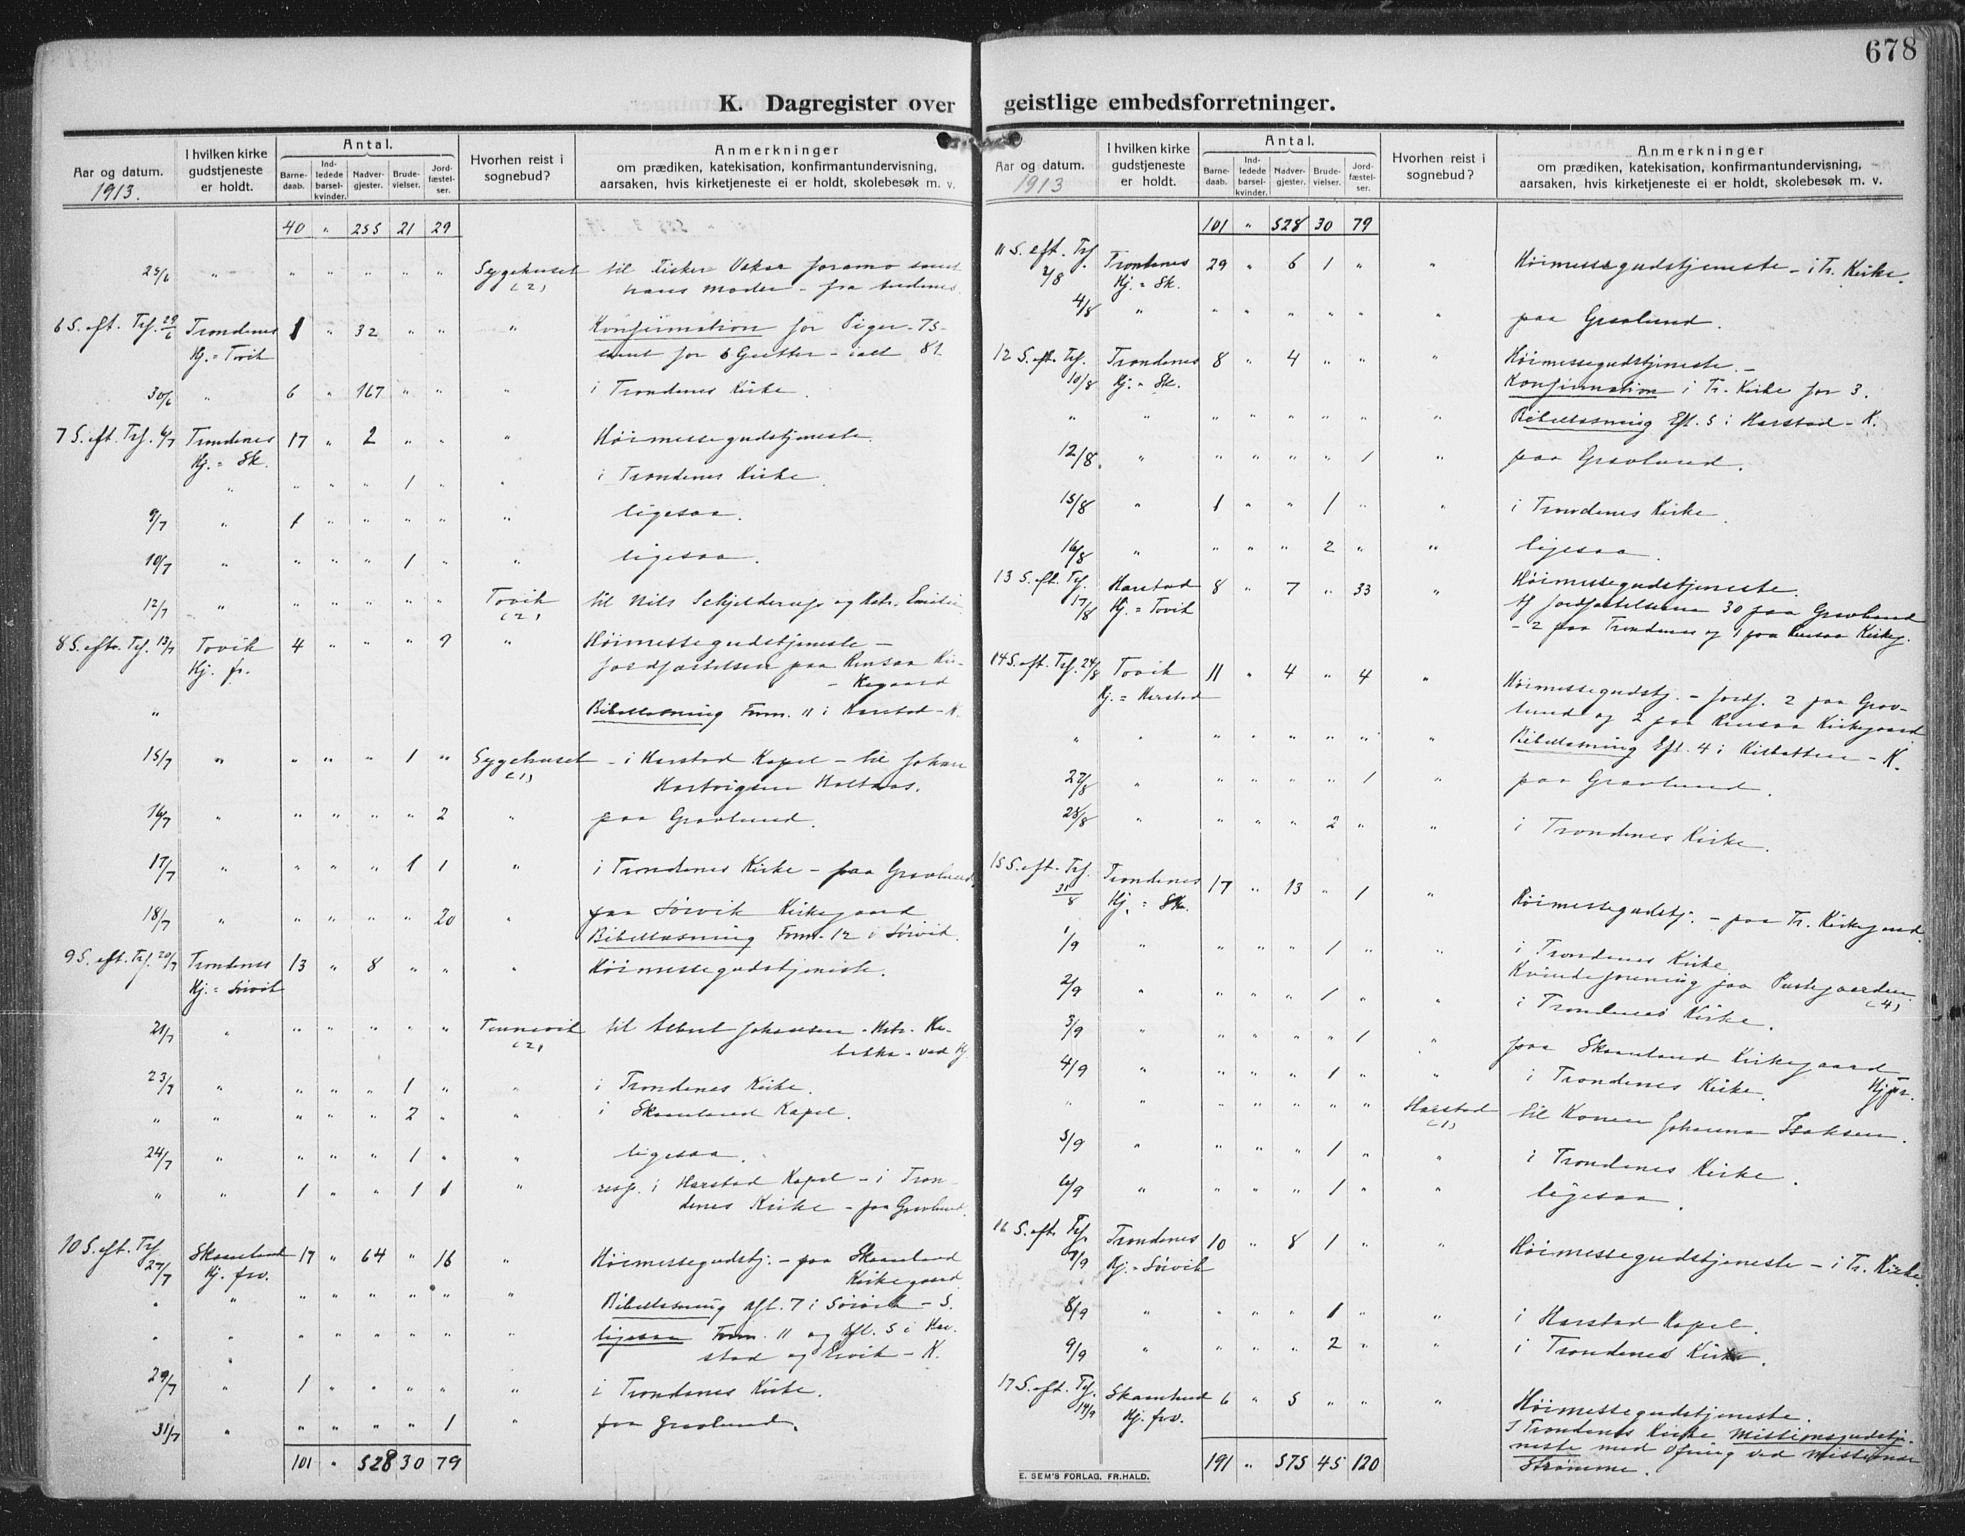 678
K. Dagregister over geistlige embedsforretninger.
Aar og datum.
1913.
I hvilken kirke
gudstjeneste
er holdt.
Antal.
Barne-
daab.
Ind-
ledede
barsel-
kvinder.
Nadver-
gjester.
Brude-
vielser.
Jord-
fæstel-
ser.
Hvorhen reist i
sognebud?
Anmerkninger
om prædiken, katekisation, konfirmantundervisning,
aarsaken, hvis kirketjeneste ei er holdt, skolebesøk m. v.
40 " 255 21 29
25/6 " " " " " " Sygehuset til Fisker
(2) hans Moder - fra
6 S. eft. Trf. 29/6 Trondenes 1 " 32 " " " Konfirmation for Piger - 75 -
Kj. = Tovik samt for 6 Gutter - ialt 81.
30/6 " 6 " 167 " " " i Trondenes Kirke.
7 S. eft. Trf. 6/7 Trondenes 17 " 2 " " " Høimessegudstjeneste.
Kj. = Sk.
" " " " 1 " " i Trondenes Kirke.
9/7 " 1 " " " " " ligesaa.
10/7 " " " " 1 " " ligesaa.
12/7 " " " " " " Tovik til Nils Schjelderup og Hstr. Emilie
(2)
8 S. eft. Trf. 13/7 Tovik 4 " " " 9 " Høimessegudstjeneste -
Kj. fr. Jordfæstelsen paa Rensaa Kir-
- kegaard
" Bibellæsning Form. 11 i Harstad - K.
15/7 " " " " 1 " Sygehuset - i Harstad Kapel - til Johan
(1) Hartvigsen
16/7 " " " " " 2 " paa Gravlund.
17/7 " " " " 1 1 " i Trondenes Kirke - paa Gravlund.
18/7 " " " " " 20 " paa Sørvik Kirkegaard
Bibellæsning Form. 12 i Sørvik.
9 S. eft. Trf. 20/7 Trondenes 13 " 8 " " " Høimessegudstjeneste.
Kj. = Sørvik
21/7 " " " " " " Tennevik til Albert Johansen - Hstr. Re-
(2) bekka - ved Kj
23/7 " " " " 1 " " i Trondenes Kirke.
" " " " " 2 " " i Skaanland Kapel.
24/7 " " " " 1 " " ligesaa.
" " 1 " " 1 1 " resp. i Harstad Kapel - i Tron-
denes Kirke - paa Gravlund.
10 S. eft. Trf. 27/7 Skaanland 17 " 64 " 16 " Høimessegudstj. - paa Skaanland
Kj. frv. Kirkegaard
" " " " " " " " Bibellæsning Eft. 7 i Sørvik - S.
" " " " " " " " ligesaa Form. 11 og Eft. 5 i Har-
stad og Ervik - K.
29/7 " 1 " " " " " i Trondenes Kirke.
31/7 " " " " " 1 " paa Gravlund.
101 " 528 30 79
Aar og datum.
1913
I hvilken kirke
gudstjeneste
er holdt.
Antal.
Barne-
daab.
Ind-
ledede
barsel-
kvinder.
Nadver-
gjester.
Brude-
vielser.
Jord-
fæstel-
ser.
Hvorhen reist i
sognebud?
Anmerkninger
om prædiken, katekisation, konfirmantundervisning,
aarsaken, hvis kirketjeneste ei er holdt, skolebesøk m. v.
101 " 528 30 79
11 S. eft. Trf. 2/8 Trondenes 29 " 6 1 " " Høimessegudstjeneste - i Tr. Kirke.
Kj. = Sk.
4/8 " " " " " " " paa Gravlund.
12 S. eft. Trf. 10/8 Trondenes 8 " 4 " " " Høimessegudstjeneste. -
Kj. = Sk. Konfirmation i Tr. Kirke for 3.
" " " " " " " Bibellæsning Eft. 5 i Harstad - K.
12/8. " " " " " 1 " paa Gravlund.
15/8 " 1 " " 1 " " i Trondenes Kirke.
16/8 " " " " 2 " " ligesaa.
13 S. eft. Trf. 17/8 Harstad 8 " 7 " 33 " Høimessegudstjeneste.
Kj. = Tovik Af Jordfæstelserne 30 paa Gravlund
- 2 paa Trondenes og 1 paa Rensaa Kirkeg.
14 S. eft. Trf. 24/8 Tovik 11 " 4 " 4 " Høimessegudstj. - Jordf. 2 paa Grav-
Kj. = Harstad lund og 2 paa Rensaa Kirkegaard
" " " " " " " Bibellæsning Eft. 4 i Kilbotten - K.
27/8 " " " " " 1 paa Gravlund.
28/8 " " " " 2 " " i Trondenes Kirke.
15 S. eft. Trf. 31/8 Trondenes 17 " 13 " 1 " Høimessegudstj. - paa Tr. Kirkegaard.
Kj. = Sk.
1/9 " " " " 1 " " i Trondenes Kirke.
Kvindeforening paa Prestegaarden
(4)
2/9 " " " " 1 " " i Trondenes Kirke.
3/9 " " " " " 1 " paa Skaanland Kirkegaard
Kj fr.
4/9 " " " " 1 " " i Trondenes Kirke.
" " " " " " " Harstad til Konen Johanna Isaksen.
(1)
5/9 " " " " 1 " " i Trondenes Kirke.
6/9 " " " " 1 " " ligesaa.
16 S. eft. Trf. 7/9 Trondenes 10 " 8 1 " " Høimessegudstjeneste - i Tr. Kirke.
Kj. = Sørvik
8/9 " " " " 1 " " i Harstad Kapel.
9/9 " " " " 2 " " i Trondenes Kirke.
17 S. eft. Trf. 14/9 Skaanland 6 " 5 " " " Høimessegudstjeneste.
Kj. frv. I Trondenes Kirke Missionsgudstje-
neste med Ofring ved
Strømme.
191 " 575 45 120
E. SEM'S FORLAG, FR.HALD.